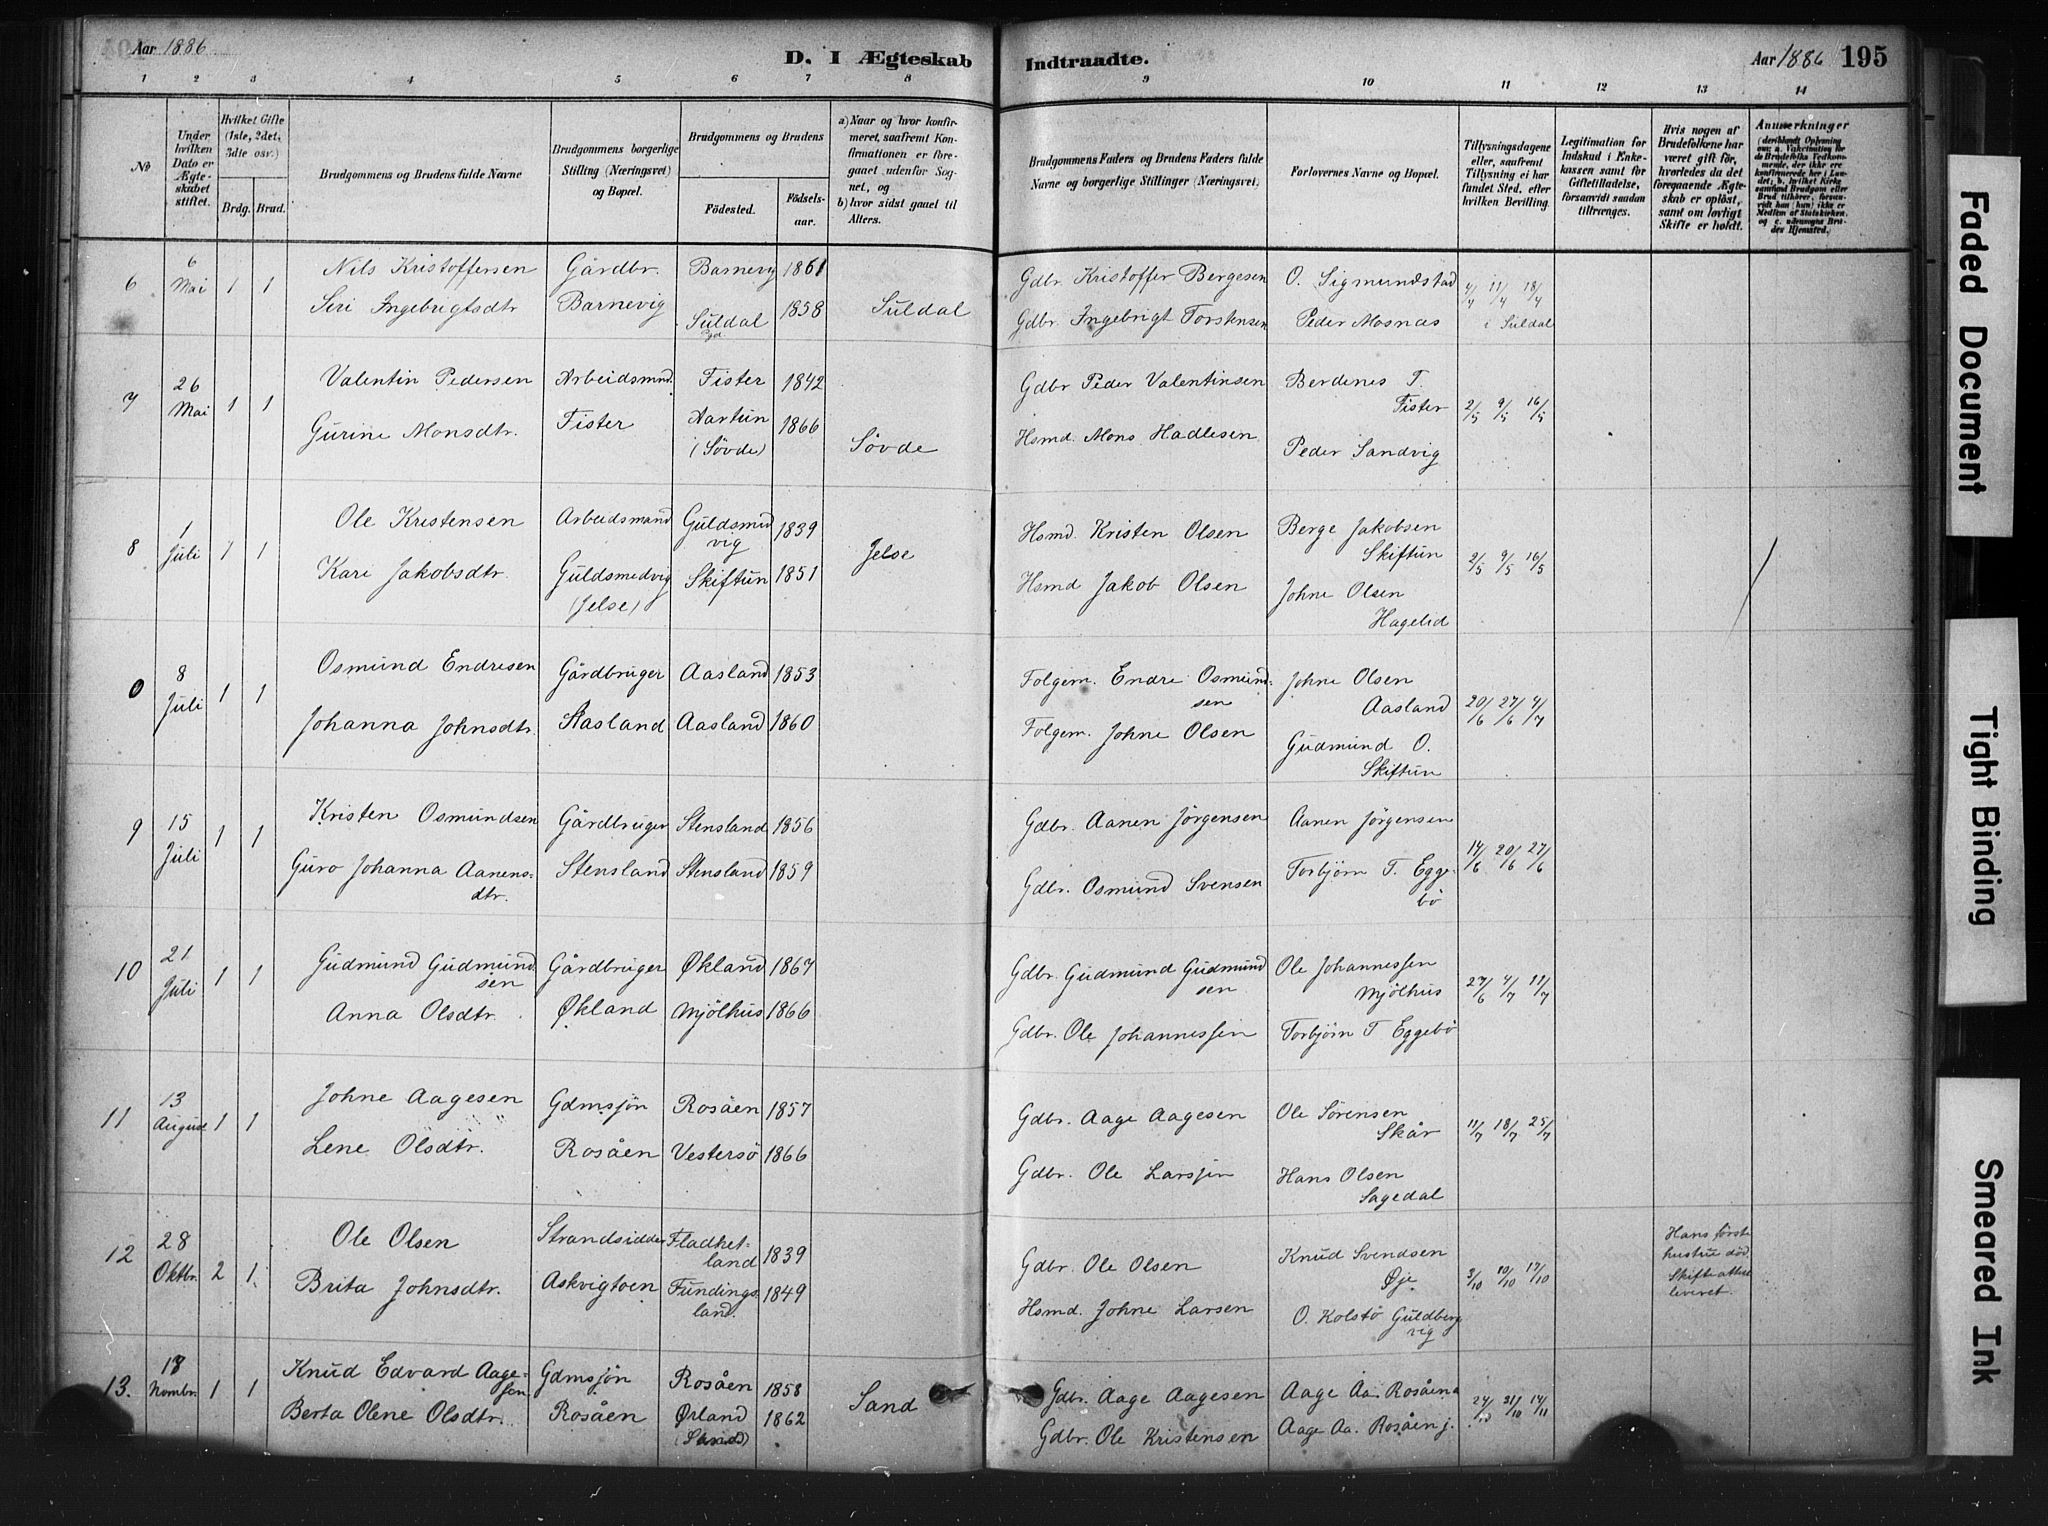 Aar 1886
D. I Ægteskab Indtraadte.
Aar 1886 195
1 2 3 4 5 6 7 8 9 10 11 12 13 14
No
Under hvilken Dato er Ægteskabet stiftet.
Hvilket Gifte (1ste, 2det, 3die osv.)
Brdg. Brud.
Brudgommens og Brudens fulde Navne
Brudgommens borgerlige Stilling (Næringsvei) og Bopæl.
Brudgommens og Brudens
Fødested.
Fødselsaar.
a) Naar og hvor konfirmeret, saafremt Konfirmationen er foregaaet udenfor Sognet, og
b) hvor sidst gaaet til Alters.
Brudgommens Faders og Brudens Faders fulde Navne og borgerlige Stillinger (Næringsvei)
Forlovernes Navne og Bopæl.
Tillysningsdagene eller, saafremt Tillysning ei har fundet Sted, efter hvilken Bevilling.
Legitimation for Indskud i Enkekassen samt for Giftetilladelse, forsaavidt saadan tiltrænges.
Hvis nogen af Brudefolkene har været gift før, hvorledes da det foregaaende Ægteskab er opløst, samt om lovligt Skifte er holdt.
Anmerkninger
6 6 Mai 1 1 Nils Kristoffersen Gårdbr. Barnevig 1861 Gdbr. Kristoffer Bergesen O. Sigmundstad 4/4 11/4 18/4
Siri Ingebrigtsdtr Barnevig Suldal Pgd 1858 Suldal Gdbr. Ingebrigt Torstensen Peder Mosnæs i Suldal
7 26 Mai 1 1 Valentin Pedersen Arbeidsmnd. Fister 1842 Gdbr Peder Valentinsen Berdines T. Fister 2/5 9/5 16/5
Gurine Monsdtr. Fister Aartun (Søvde) 1866 Søvde Hsmd. Mons Hadlesen Peder Sandvig
8 1 Juli 1 1 Ole Kristensen Arbeidsmand Guldsmedvig 1839 Hsmd. Kristen Olsen Berge Jakobsen Skiftun 2/5 9/5 16/5
Kari Jakobsdtr. Guldsmedvig (Jelse) Skiftun 1851 Jelse Hsmd Jakob Olsen Johne Olsen Hagelid
0 8 Juli 1 1 Osmund Endresen Gårdbruger Aasland 1853 Folgem. Endre Osmundsen Johne Olsen Aasland 20/6 27/6 4/7
Johanna Johnsdtr. Aasland Aasland 1860 Folgem. Johne Olsen Gudmund O. Skiftun
9 15 Juli 1 1 Kristen Osmundsen Gårdbruger Stensland 1856 Gdbr. Aanen Jørgensen Aanen Jørgensen 14/6 20/6 27/6
Guro Johanna Aanensdtr. Stensland Stensland 1859 Gdbr. Osmund Svensen Torbjørn T. Eggebö
10 21 Juli 1 1 Gudmund Gudmundsen Gårdbruger Økland 1867 Gdbr. Gudmund Gudmundsen Ole Johannessen Mjölhus 27/6 4/7 11/7
Anna Olsdtr. Økland Mjölhus 1866 Gdbr. Ole Johannessen Torbjørn T Eggebö
11 13 August 1 1 Johne Aagesen Gdmsjön Rosåen 1857 Gdbr. Aage Aagesen Ole Sørensen Skår 11/7 18/7 25/7
Lene Olsdtr. Rosåen Vestersö 1866 Gdbr. Ole Larssen Hans Olsen Sagedal
12 28 Oktbr. 2 1 Ole Olsen Strandsidder Fladhetland 1839 Gdbr. Ole Olsen Knud Svendsen Øje 3/10 10/10 17/10 Hans første hustru död. Skifteattest leveret.
Brita Johnsdtr. Askvigtoen Fundingsland. 1849 Hsmd. Johne Larsen O. Kolstö Guldbergvig
13. 18 Novmbr. 1 1 Knud Edvard Aagesen Gdmsjön Rosåen 1858 Gdbr. Aage Aagesen Aage Aa. Rosåen 24/10 31/10 14/11
Berta Olene Olsdtr. Rosåen Ørland (Sand) 1862 Sand Gdbr. Ole Kristensen Aage Aa. Rosåen j.
Faded Document
Tight Binding
Smeared Ink